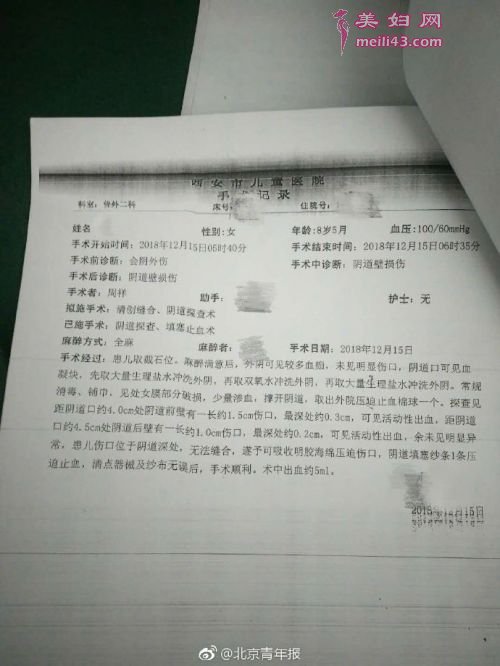 美妇网
meili43.com
西安市儿童医院
手术记录
科室：骨外二科 床号： 住院号：
姓名 性别：女 年龄：8岁5月 血压：100/60mmHg
手术开始时间：2018年12月15日05时40分 手术结束时间：2018年12月15日06时35分
手术前诊断：会阴外伤 手术中诊断：阴道壁损伤
手术后诊断：阴道壁损伤
手术者：周祥 助手： 护士：无
拟施手术：清创缝合、阴道探查术
已施手术：阴道探查、填塞止血术
麻醉方式：全麻 麻醉者： 手术日期：2018年12月15日
手术经过：患儿取截石位。麻醉满意后，外阴可见较多血痂，未见明显伤口，阴道口可见血
凝块，先取大量生理盐水冲洗外阴，再取双氧水冲洗外阴，再取大量生理盐水冲洗外阴。常规
消毒、铺巾，见处女膜部分破损，少量渗血，撑开阴道，取出外院压迫止血棉球一个。探查见
距阴道口约4.0cm处阴道前壁有一长约1.5cm伤口，最深处约0.3cm，可见活动性出血，距阴道
口约4.5cm处阴道后壁有一长约1.0cm伤口，最深处约0.2cm，可见活动性出血，余未见明显异
常，患儿伤口位于阴道深处，无法缝合，遂予可吸收明胶海绵压迫伤口，阴道填塞纱条1条压
迫止血，清点器械及纱布无误后，手术顺利。术中出血约5ml。
2018年12月15日
@北京青年报